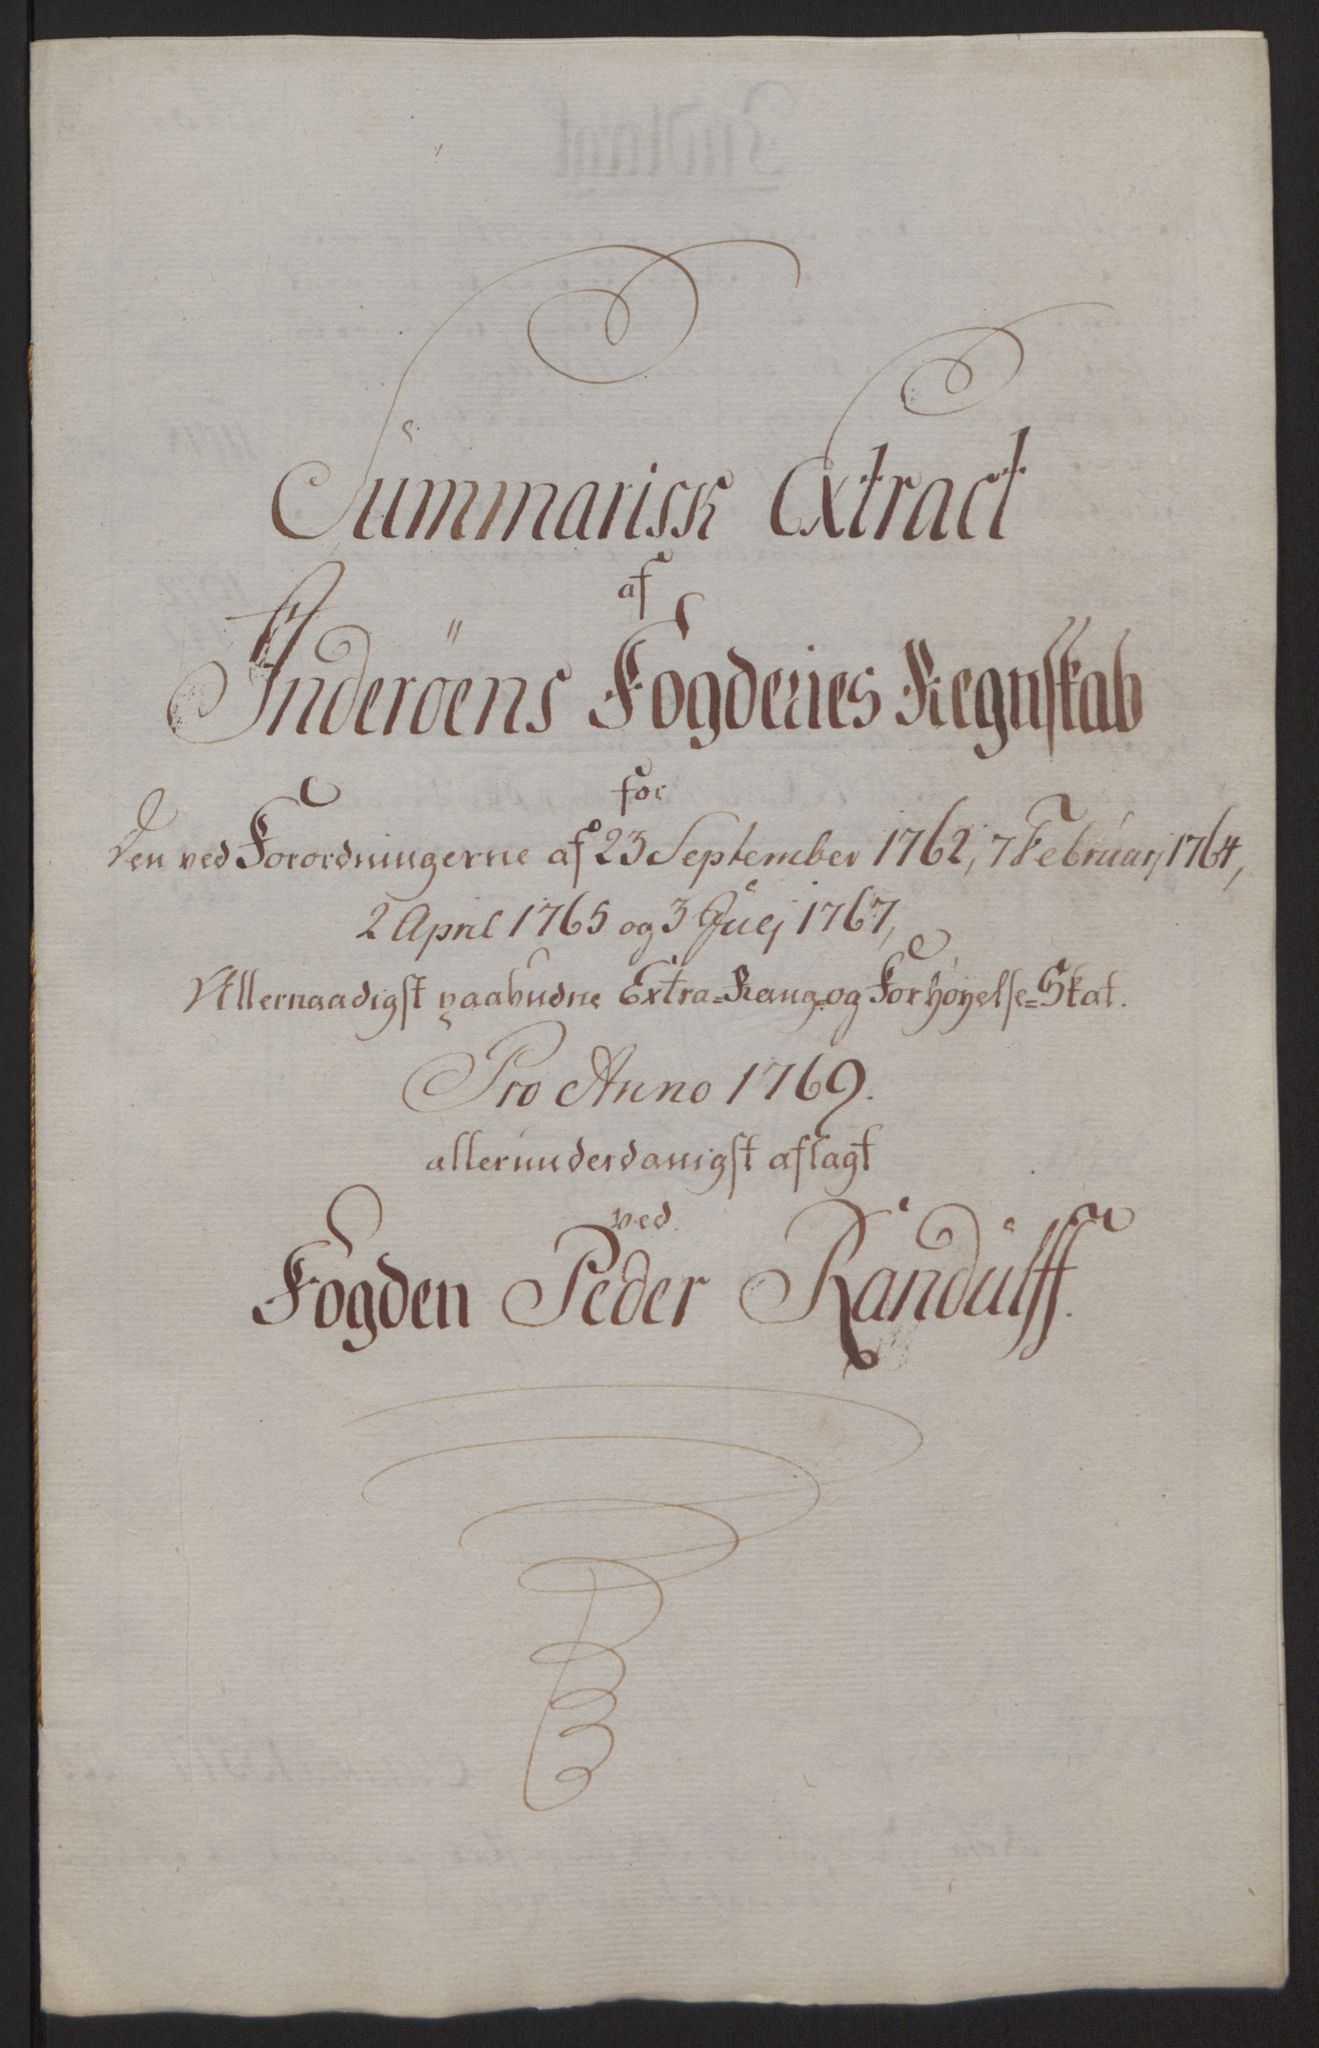 Summarisk Extract
af
Inderöens Fogderies Regnskab
for
Den ved Forordningerne af 23 September 1762, 7 Februarj 1764,
2 April 1765 og 3 Julj 1767,
Allernaadigst paabudne Extra-Rang- og Forhøyelse-Skat.
Pro Anno 1769.
allerunderdanigst aflagt
ved
Fogden Peder Randulff.